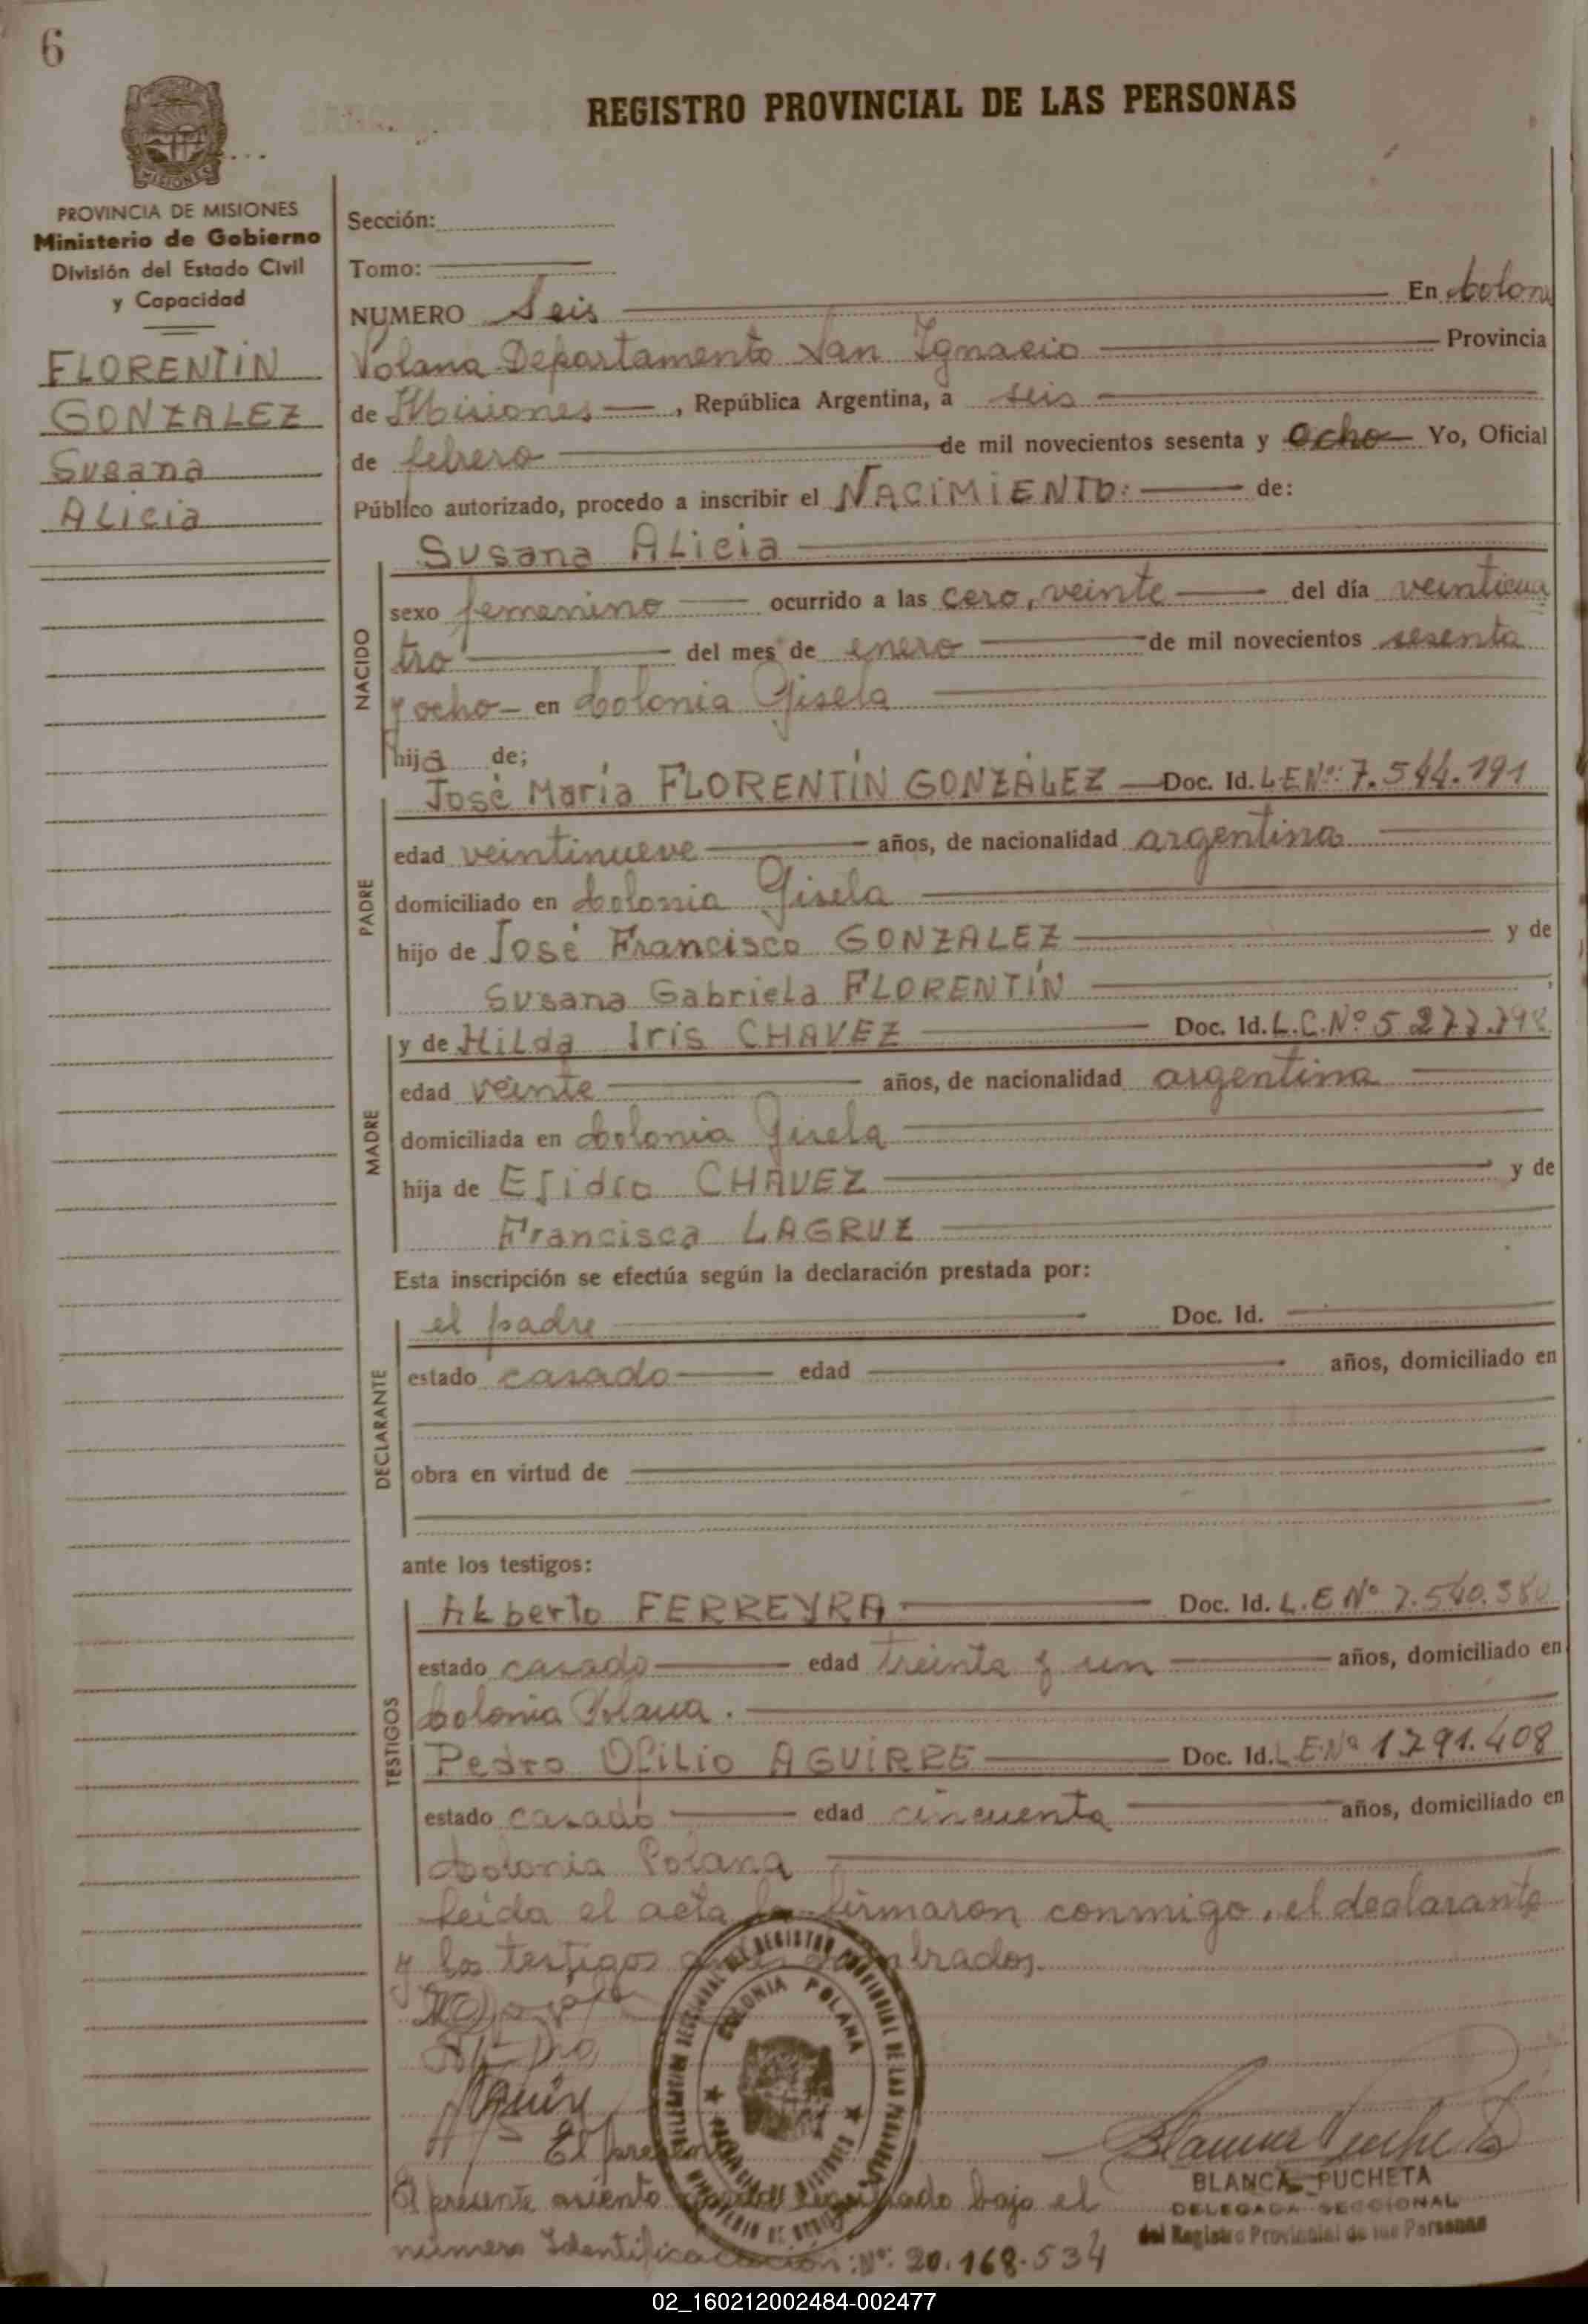 6
REGISTRO PROVINCIAL DE LAS PERSONAS
MISIONES
PROVINCIA DE MISIONES
Ministerio de Gobierno
División del Estado Civil
y Capacidad
FLORENTÍN
GONZALEZ
Susana
Alicia
Sección:
Tomo:
NUMERO Seis En Coloni
Polana Departamento San Ignacio Provincia
de Misiones, República Argentina, a seis
de febrero de mil novecientos sesenta y ocho Yo, Oficial
Público autorizado, procedo a inscribir el NACIMIENTO: de:
Susana Alicia
NACIDO
sexo femenino ocurrido a las cero, veinte del día veinticua
tro del mes de enero de mil novecientos sesenta
y ocho en Colonia Gisela
hija de;
PADRE
José María FLORENTÍN GONZÁLEZ Doc. Id. L E Nº: 7.544.191
edad veintinueve años, de nacionalidad argentina
domiciliado en Colonia Gisela
hijo de José Francisco GONZALEZ y de
Susana Gabriela FLORENTÍN
MADRE
y de Hilda Iris CHAVEZ Doc. Id. L.C. Nº 5
edad veinte años, de nacionalidad argentina
domiciliada en Colonia Gisela
hija de Esidro CHAVEZ y de
Francisca LAGRUZ
Esta inscripción se efectúa según la declaración prestada por:
DECLARANTE
el padre Doc. Id.
estado casado edad años, domiciliado en
obra en virtud de
ante los testigos:
TESTIGOS
Alberto FERREYRA Doc. Id. L.E Nº
estado casado edad treinta y un años, domiciliado en
Colonia Polana.
Pedro Ofilio AGUIRRE Doc. Id. L E Nº 1791.408
estado casado edad cincuenta años, domiciliado en
Colonia Polana
Leida el acta la firmaron conmigo, el declarante
y los testigos nombrados.
COLONIA POLANA
El presente
BLANCA PUCHETA
DELEGADA SECCIONAL
del Registro Provincial de las Personas
El presente asiento registrado bajo el
número Identificación: Nº: 20.168.534
02_160212002484-002477